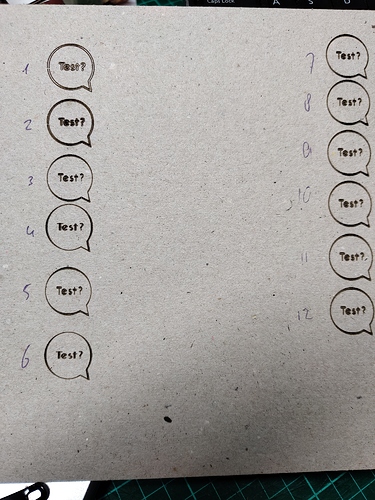 Caps Lock A S D
1 Test?
2 Test?
3 Test?
4 Test?
5 Test?
6 Test?
7 Test?
8 Test?
9 Test?
10 Test?
11 Test?
12 Test?